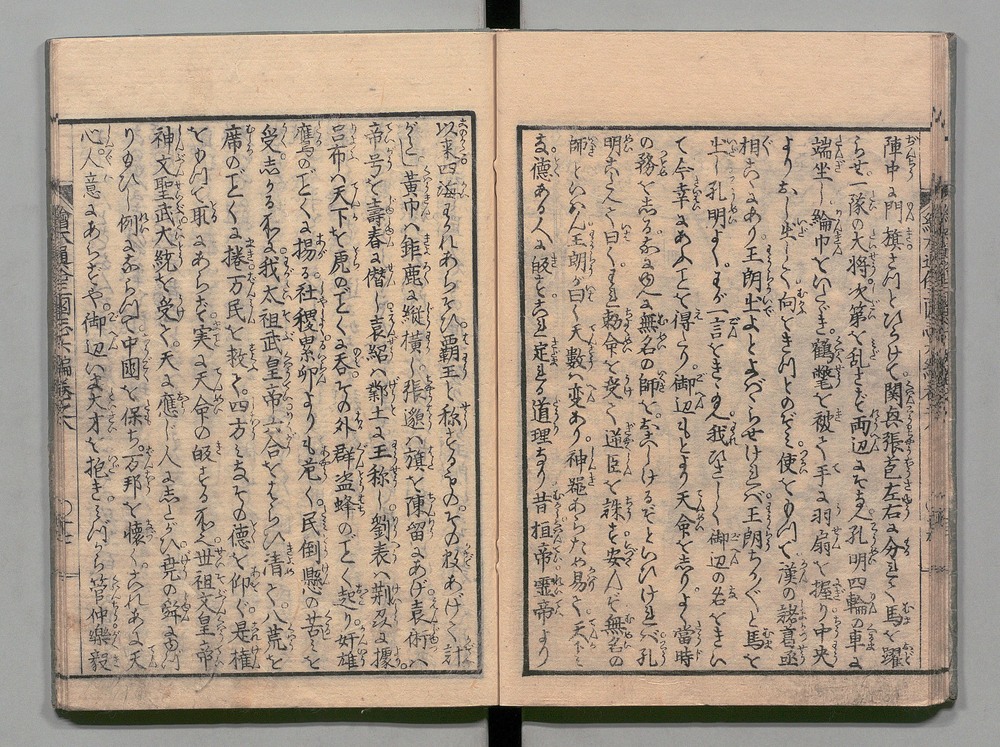 陣中の門旗さつとひらけて。関興張苞左右に分れて馬を躍
らせ一隊の大将次第を乱さず両辺にそなへ孔明四輪の車に
端坐し綸巾をいたゞき。鶴氅を被て手に羽扇を握り中央
よりおし出して向をきつとのぞミ使をもつて漢の諸葛丞
相こゝにあり王朗出よとよバゝらせけれバ王朗ちかぐと馬を
出し孔明よく。わが一言をきゝ玉へ我ひさしく御辺の名をきい
て今幸にあふことを得たり。御辺もとより天命をしり。よく當時
の務をしる。なにゆへ無名の師をおこしけるぞといひけれバ孔
明こたへて曰く。われ勅命を受て逆臣を誅す安んぞ無名の
師といはん王朗が曰く天数ハ変あり神器あらため易く天下
有德ある人に皈すこれ定れる道理なり昔桓帝靈帝より
以来四海わかれあらそひ覇王と称するものその数あげて計
がたし。黄巾ハ鉅鹿に縦横し張邈ハ旗を陳留にあげ袁術ハ
帝号を壽春に僣し袁紹ハ鄴土に王称し劉表ハ荊州に據
呂布ハ天下を虎のごとくに呑その外群盗蜂のごとく起り奸雄
鷹のごとくに揚る社稷累卵よりも危く。民倒懸の苦ミを
受しかるに我太祖武皇帝六合をはらひ清く。八荒を
席のごとくに捲万民を救て。四方ミなその德を仰ぐ是権
をもつて取にあらず。実に天命の皈する所也世祖文皇帝
神文聖武大統を受て。天に應じ人にしたがひ堯の舜に
りたひし例にならつて中國を保ち。万邦を懐くこれあに天
心人意にあらずや。御辺いま大才を抱きミづから管仲樂毅